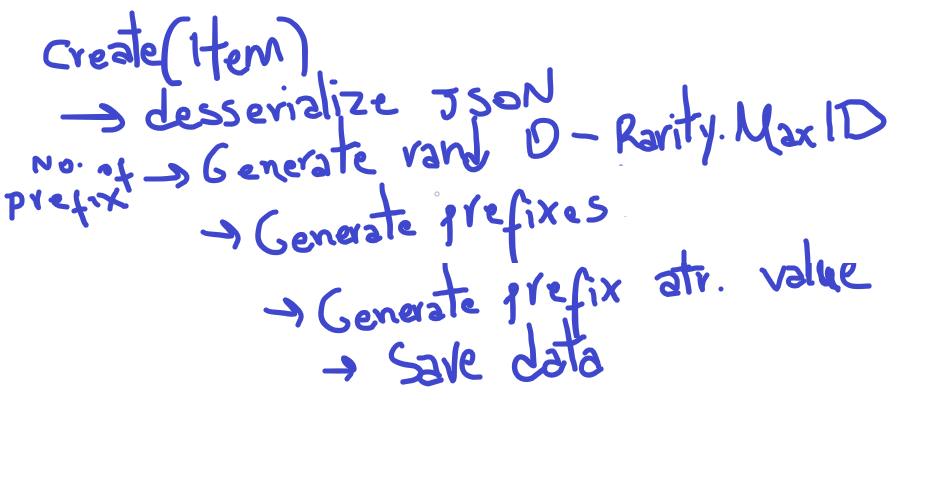 Create(Item)
→ desserialize JSON
No. of prefix → Generate rand 0 - Rarity.MaxID
→ Generate prefixes
→ Generate prefix atr. value
→ Save data